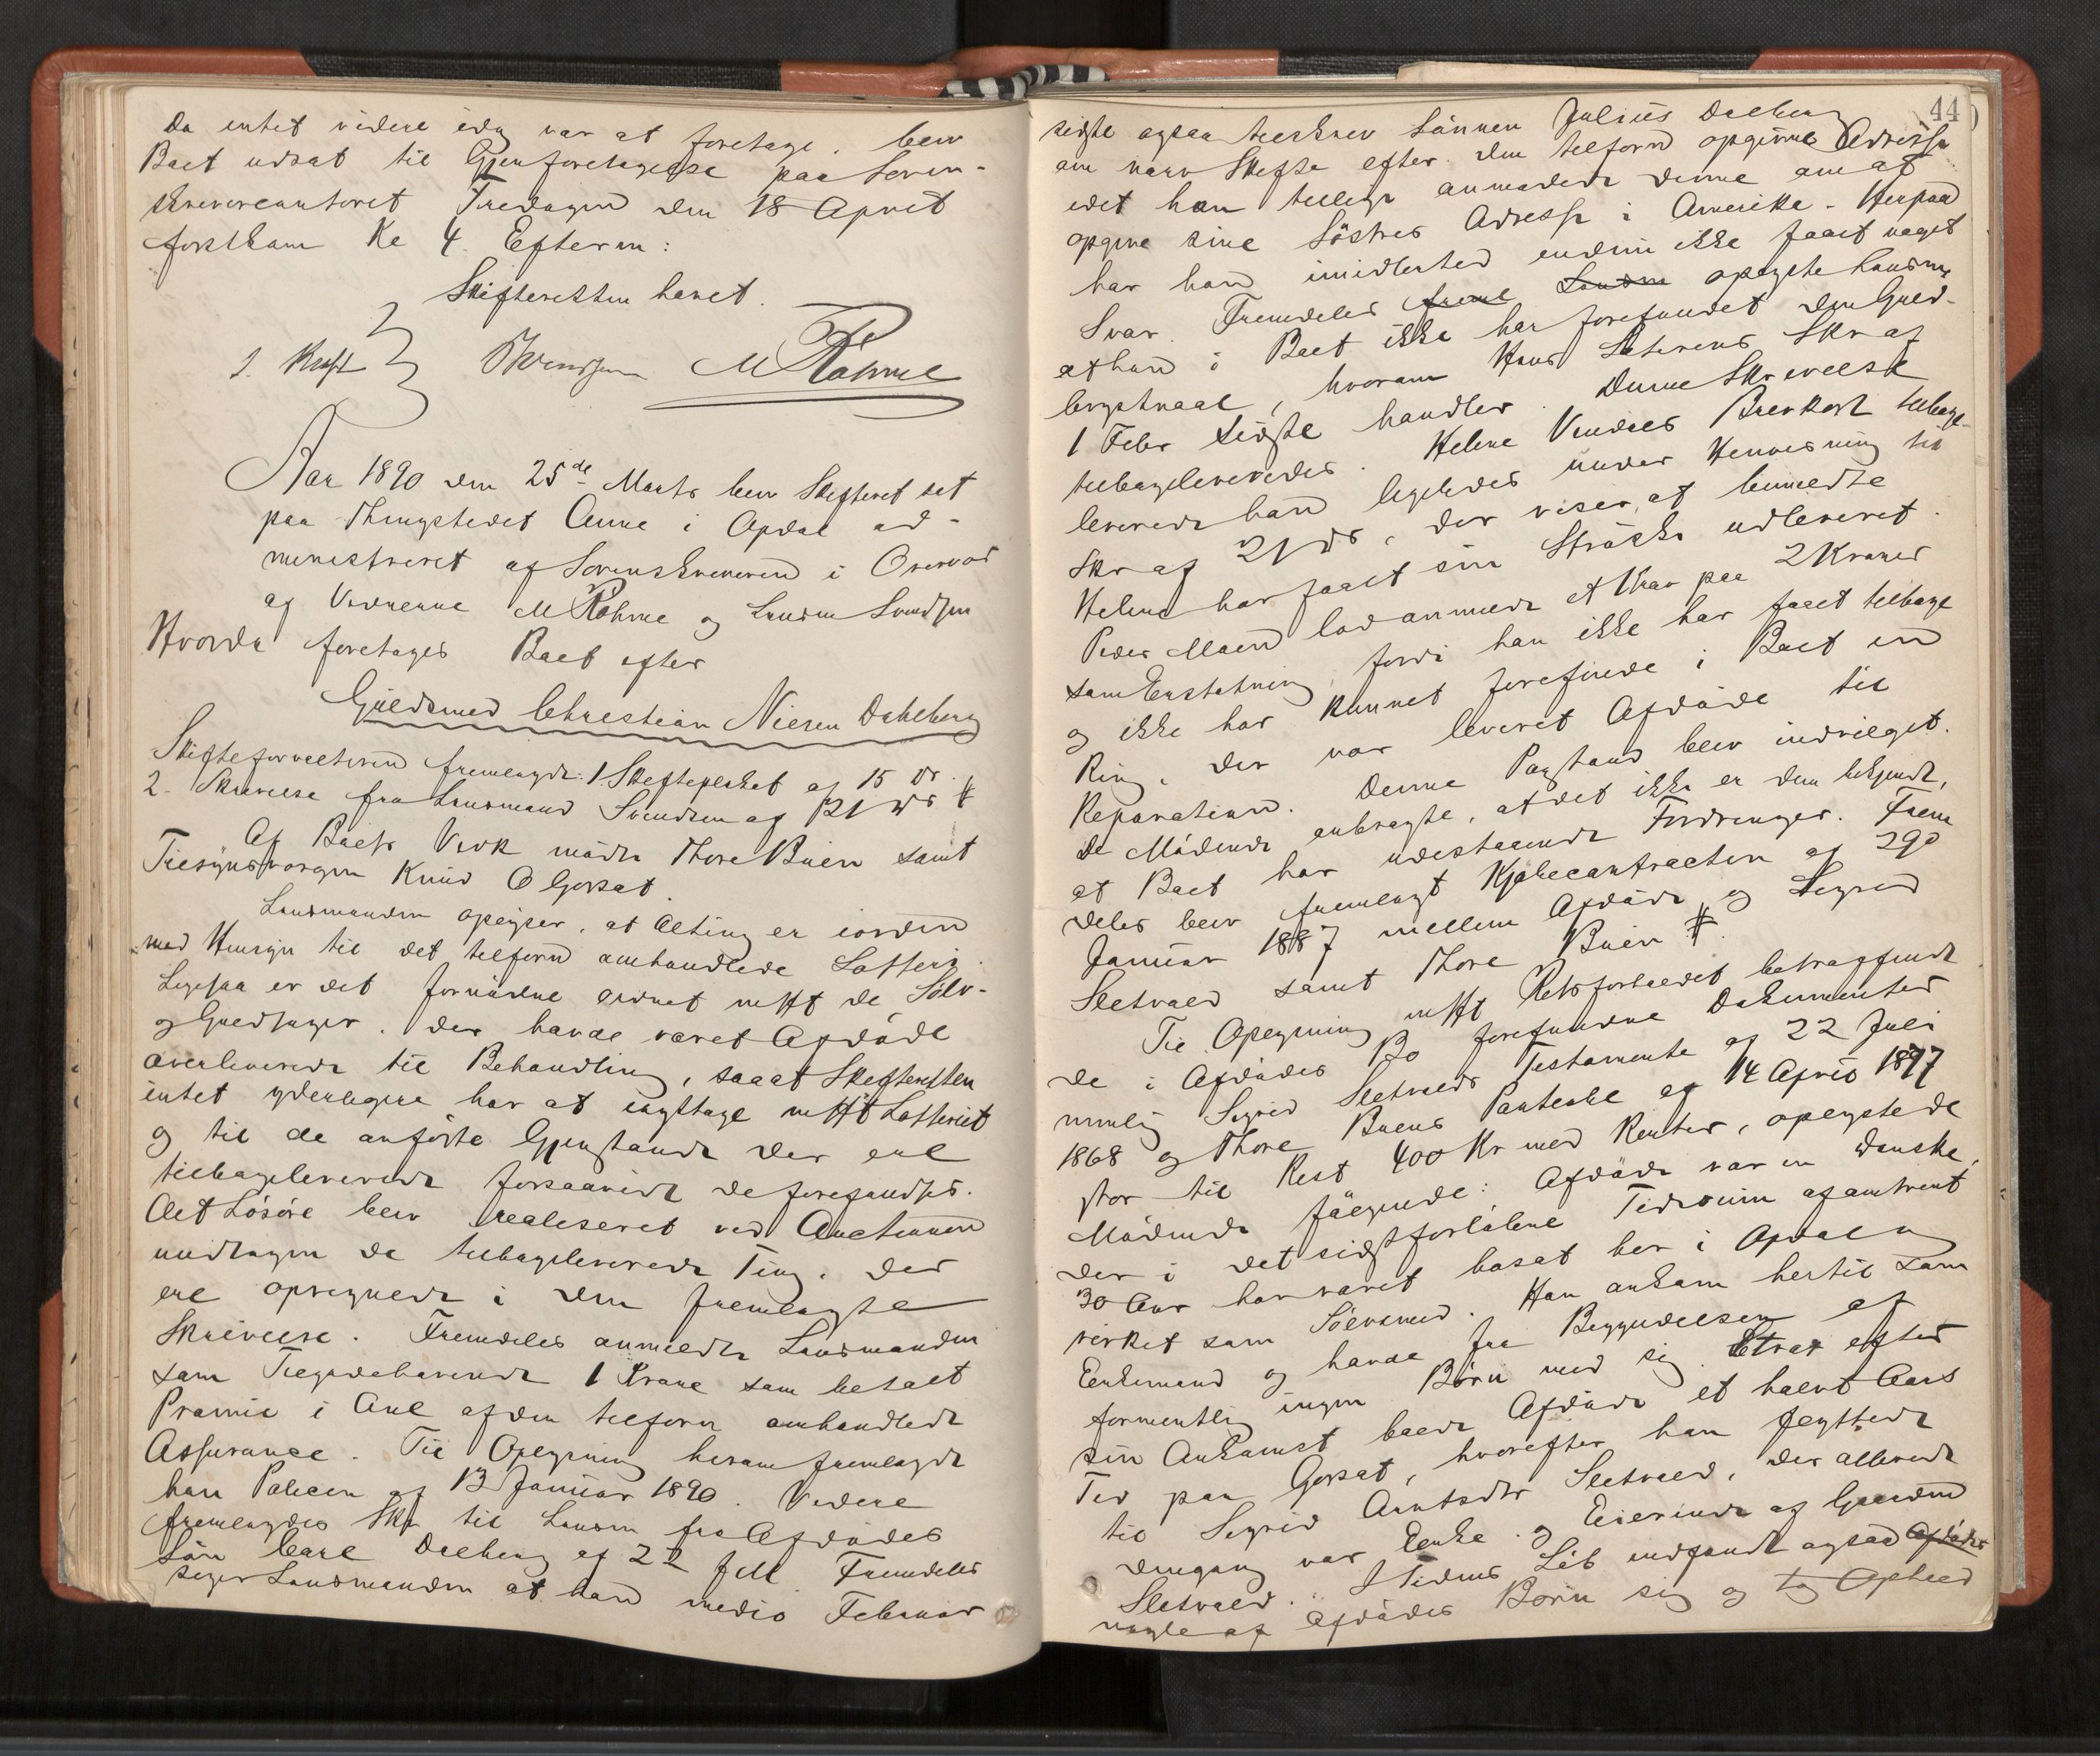 da intet videre idag var at foretage, blev
Boet udsat til Gjenforetagelse paa Soren-
skrivercontoret Fredagen den 18 April
førstkom Kl 4 Efterm:
Skifteretten hævet.
J. Kraft Svendsen M Røhme
Aar 1890 den 25de Marts blev Skifteret sat
paa Thingstedet Aune i Opdal ad-
ministreret af Sorenskriveren i Overvær
af Vidnerne M Røhme og Lensm Svendsen
Hvorda foretages Boet efter
Guldsmed Christian Nielsen Dahlberg
Skifteforvalteren fremlagde: 1. Skifteplakat af 15 ds.
2. Skrivelse fra Lensmand Svendsen af 21 ds #
Af Boets Vedk mødte Thore Buen samt
Tilsynsvorgen Knud O Gorset.
Lensmanden oplyser, at Alting er iorden
med Hensyn til det tilforn omhandlede Lotteri.
Ligesaa er det fornødne ordnet mHt de Sølv-
og Guldsager, der havde været Afdøde
overleverede til Behandling, saaat Skifteretten
intet yderligere har at iagttage mHt Lotteriet
og til de anførte Gjenstande der ere
tilbageleverede forsaavidt de forefandtes.
Alt Løsøre blev realiseret ved Auctionen
undtagen de tilbageleverede Ting, der
ere opregnede i den fremlagte
Skrivelse. Fremdeles anmeldte Lensmanden
som Tilgodehavende 1 Krone som betalt
Præmie i Anl af den tilforn omhandlede
Assurance. Til Oplysning herom fremlagde
han Policen af 13 Januar 1890. Videre
fremlagdes Skr til Lensm fra Afdødes
Søn Carl Dalberg af 22 f M. Fremdeles
siger Lensmanden at han medio Februar
44
sidste ogsaa tilskrev Sønnen Julius Dalberg
om nærv Skifte efter den tilforn opgivne Adresse
idet han tillige anmodede denne om at
opgive sine Søstres Adresse i Amerika. Herpaa
har han imidlertid endnu ikke faaet noget
Svar. Fremdeles freml Lensm oplyste Lensm
at han i Boet ikke har forefundet den Guld-
brystnaal, hvorom Hans Sæterens Skr af
1 Febr sidste handler. Denne Skrivelse
tilbageleveredes. Helene Vindals Brevkort tilbage-
leverede han ligeledes under Henvisning til
Skr af 21 ds, der viser, at bemeldte
Helene har faaet sin Sølvske udleveret.
Peder Moen lod anmelde et Krav paa 2 Kroner
som Erstatning, fordi han ikke har faaet tilbage
og ikke har kunnet forefinde i Boet en
Ring, der var leveret Afdøde til
Reparation. Denne Paastand blev indvilget.
De Mødende anbragte, at det ikke er dem bekjendt,
at Boet har udestaaende Fordringer. Frem
deles blev fremlagt Kjøbecontracten af 29de
Januar 1887 mellem Afdøde og Sigrid
Sletvold samt Thore Buen #.
Til Oplysning mHt Retsforholdet betræffende
de i Afdødes Bo forefundne Dokumenter
nemlig Sigrid Sletvolds Testamente af 22 Juli
1868 og Thore Buens Panteobl af 14 April 1877
stor til Rest 400 Kr med Renter, oplyste de
Mødende følgende: Afdøde var en Danske,
der i det sidstforløbne Tidsrum af omtrent
30 Aar har været bosat her i Opdal og
virket som Sølvsmed. Han ankom hertil som
Enkemand og havde fra Begyndelsen af
formentlig ingen Børn med sig. Strax efter
sin Ankomst boede Afdøde et halvt Aars
Tid paa Gorset, hvorefter han flyttede
til Sigrid Arntsdtr Sletvold, der allerede
dengang var Enke og Eierinde af Gaarden
Sletvold. I Tidens Løb indfandt ogsaa Afdødes
nogle af Afdødes Børn sig og tog Ophold